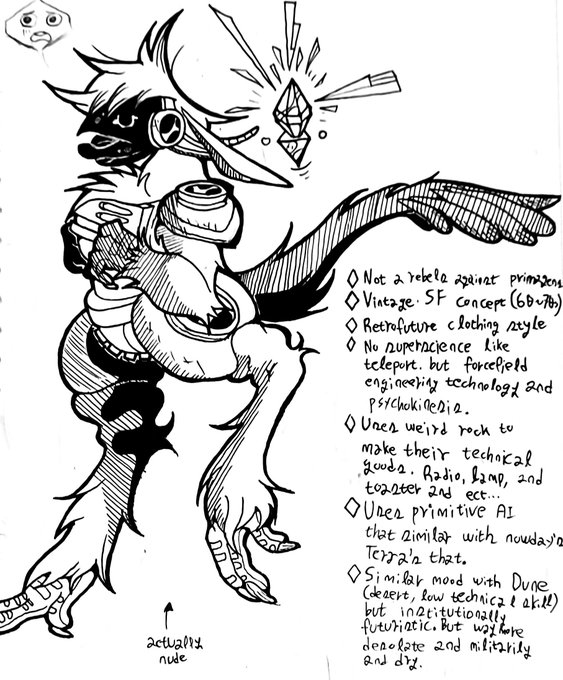 ◇ Not a rebels against primagens
◇ Vintage SF concept (60~70s)
◇ Retrofuture clothing style
◇ No superscience like
teleport. but forcefield
engineering technology and
psychokinesis.
◇ Uses weird rock to
make their technical
goods. Radio, lamp, and
toaster and ect...
◇ Uses primitive AI
that similar with nowday's
Terra's that.
◇ Similar mood with Dune
(desert, low technical skill)
but institutionally
futuristic. But way more
desolate and militarily
and dry.
actually
nude